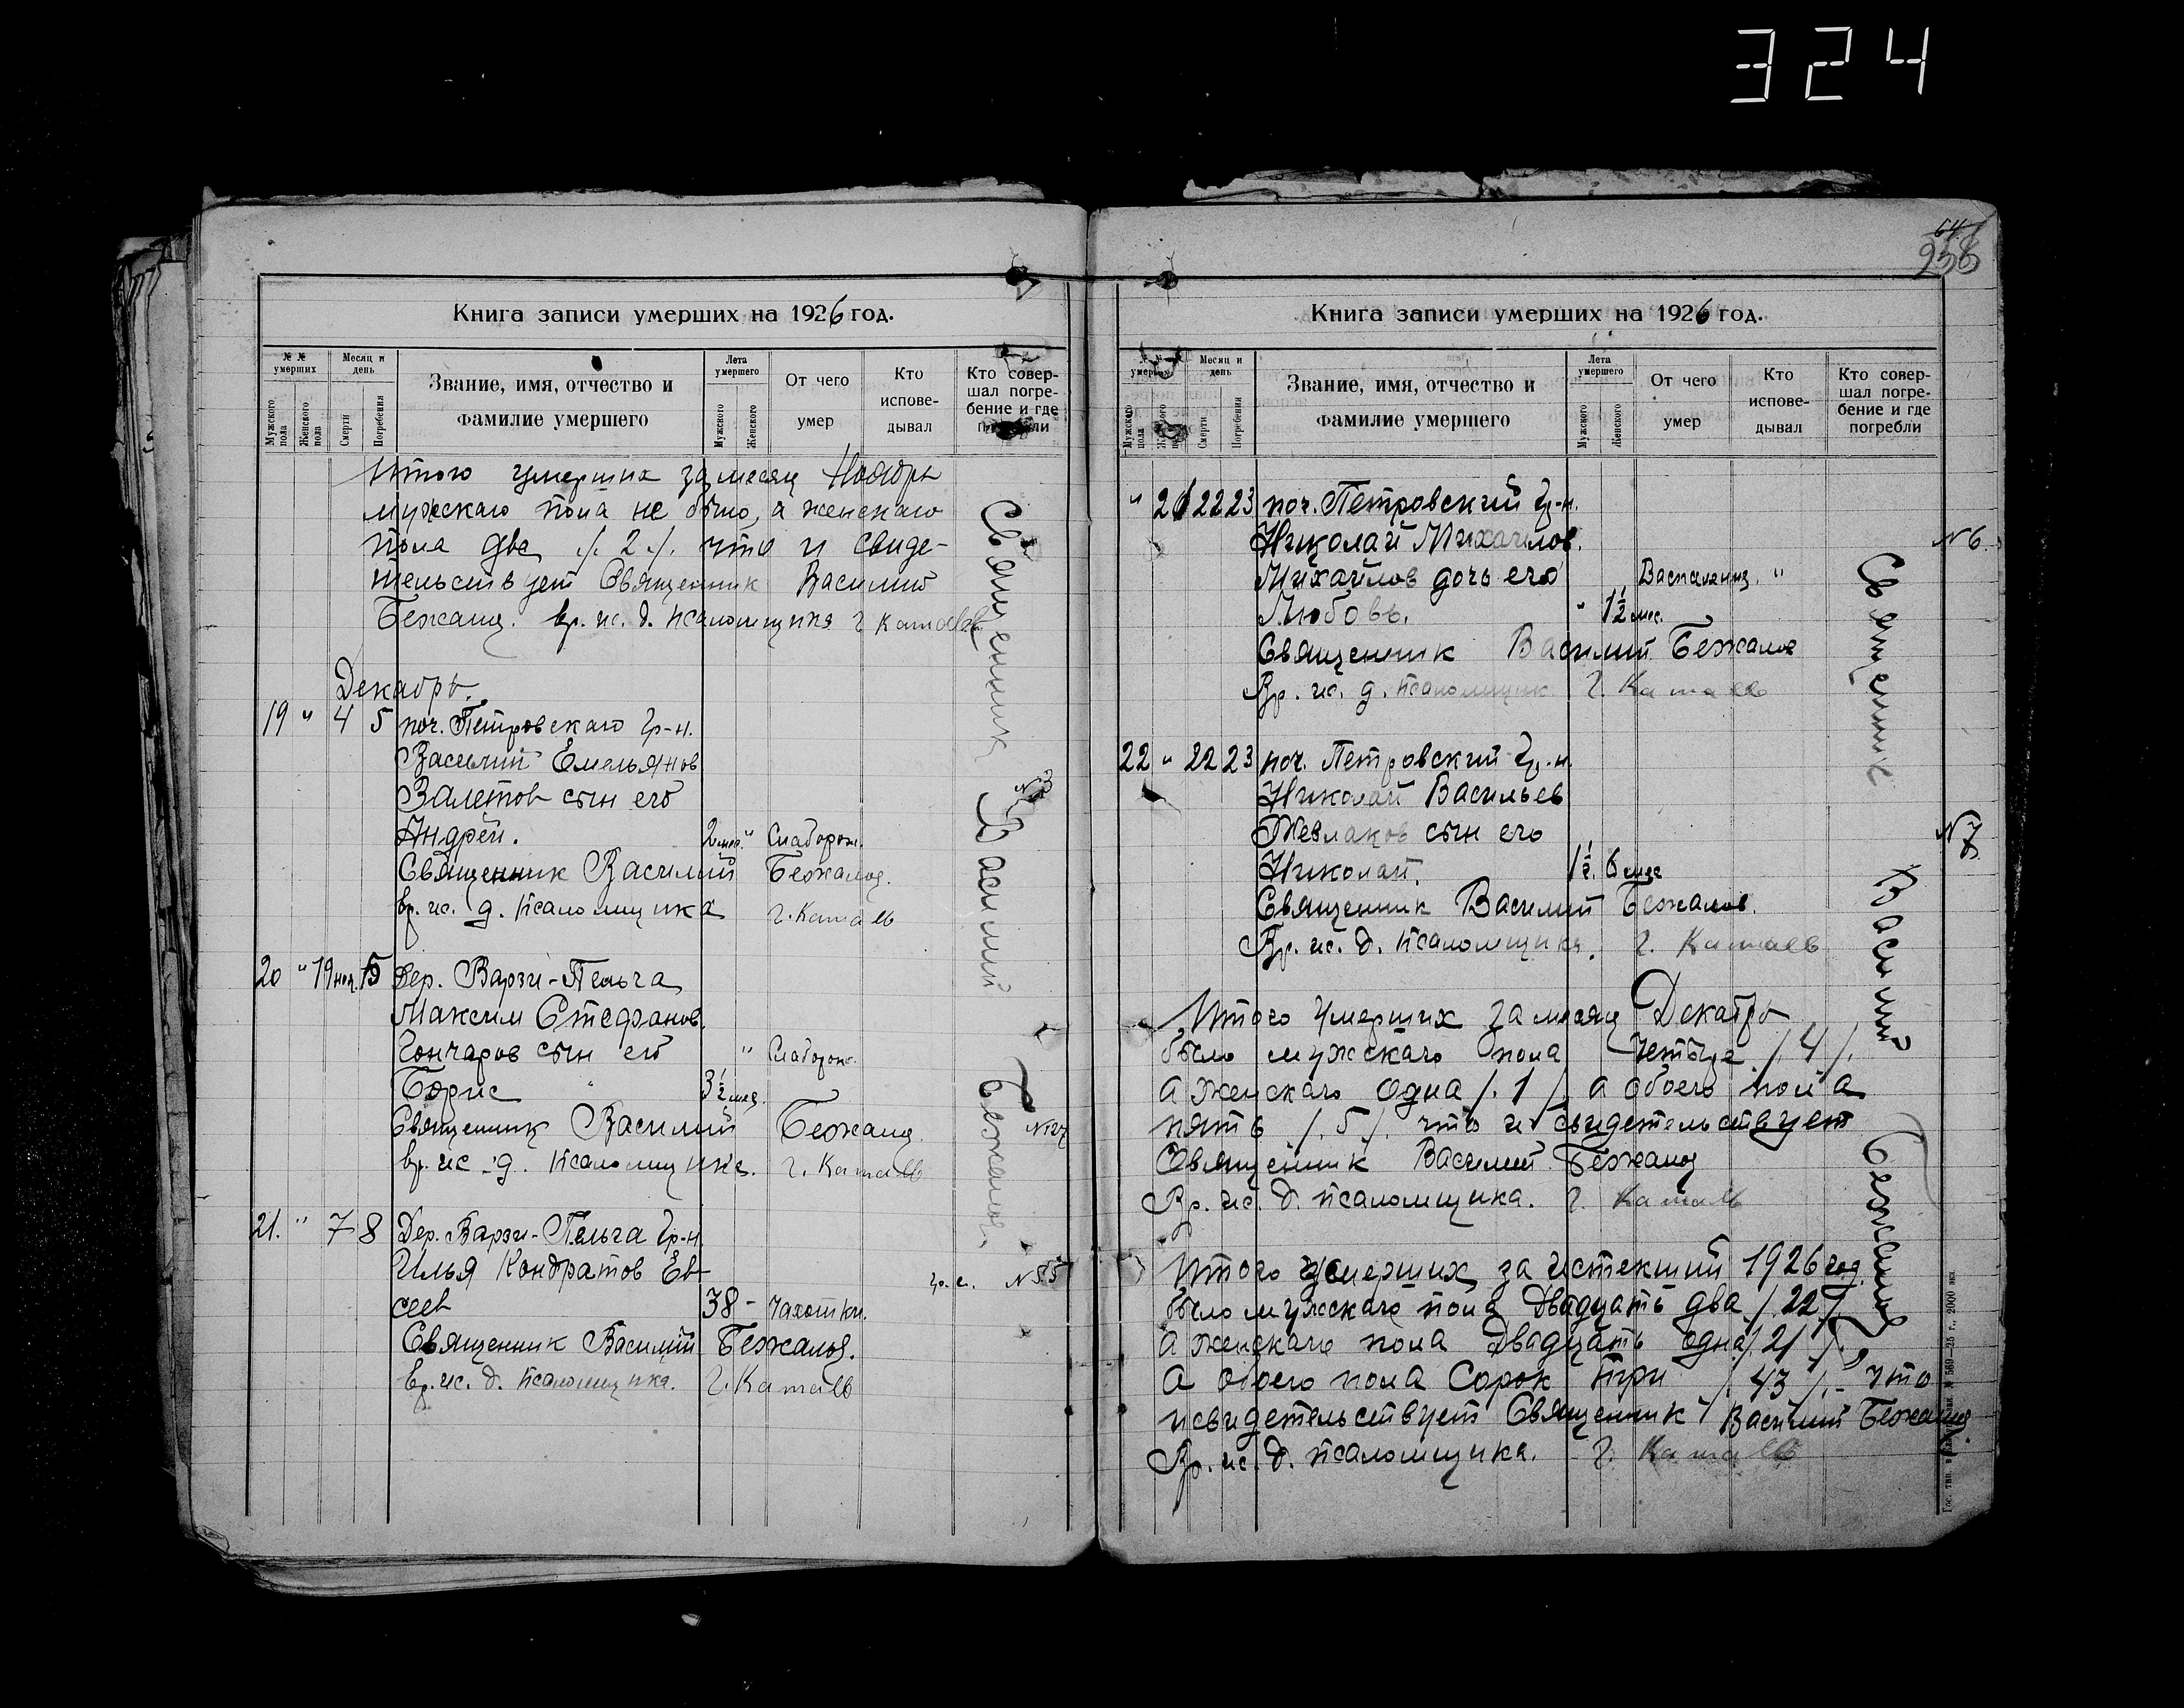 324
64
258
Книга записи умерших на 1926 год.
№ № умерших
Мужского пола
Женского пола
Месяц и день
Смерти
Погребения
Звание, имя, отчество и фамилие умершего
Лета умершего
Мужского
Женского
От чего умер
Кто исповедывал
Кто совершал погребение и где погребли
Итого умерших за месяц Ноябрь
мужскаго пола не было, а женскаго
пола две /. 2 ./. что и свиде-
тельствует Священник Василий
Бежанов. вр. ис. д. псаломщика Г Катаев
Декабрь.
19 " 4 5 поч. Петровскаго гр-н.
Василий Емельянов
Валетов сын его
Андрей. 2 мес. " Слаборож.
Священник Василий Бежанов.
вр. ис. д. псаломщика Г. Катаев
№3
20 " 19 ноя. 15 Дер. Варзи-Пельга
Максим Стефанов.
Гончаров сын его " Слаборож.
Борис " 3 1/2 мес.
Священник Василий Бежанов.
вр. ис. д. псаломщика. Г. Катаев
№127
21. " 7 8 Дер. Варзи-Пельга гр-н.
Илья Кондратов Ев-
сеев 38 - Чахотки.
№55
Священник Василий Бежанов.
вр. ис. д. псаломщика. Г. Катаев
Священник Василий Бежанов
Книга записи умерших на 1926 год.
№ № умерших
Мужского пола
Женского пола
Месяц и день
Смерти
Погребения
Звание, имя, отчество и фамилие умершего
Лета умершего
Мужского
Женского
От чего умер
Кто исповедывал
Кто совершал погребение и где погребли
" 21 22 23 поч. Петровский гр-н.
Николай Михайлов.
№6.
Михайлов дочь его Васпаления. "
Любовь. " 1 1/2 мес.
Священник Василий Бежанов
Вр. ис. д. псаломщик Г. Катаев
22 " 22 23 поч. Петровский гр-н.
Николай Васильев
Жевлаков сын его
№7
Николай. 1 1/2. 6 мес
Священник Василий Бежанов.
Вр. ис. д. псаломщика. Г. Катаев
Итого умерших за месяц Декабрь
было мужскаго пола четыре /. 4 /.
а женскаго одна /. 1 /. а обоего пола
пять /. 5 /. что и свидетельствует
Священник Василий Бежанов
Вр. ис. д. псаломщика. Г. Катаев
Итого умерших за истекший 1926 год.
было мужскаго пола Двадцать два /. 22 /.
а женскаго пола Двадцать одна /. 21 /.
а обоего пола Сорок три /. 43 /. - что
и свидетельствует Священник Василий Бежанов
Вр. ис. д. псаломщика. Г. Катаев
Священник Василий Бежанов